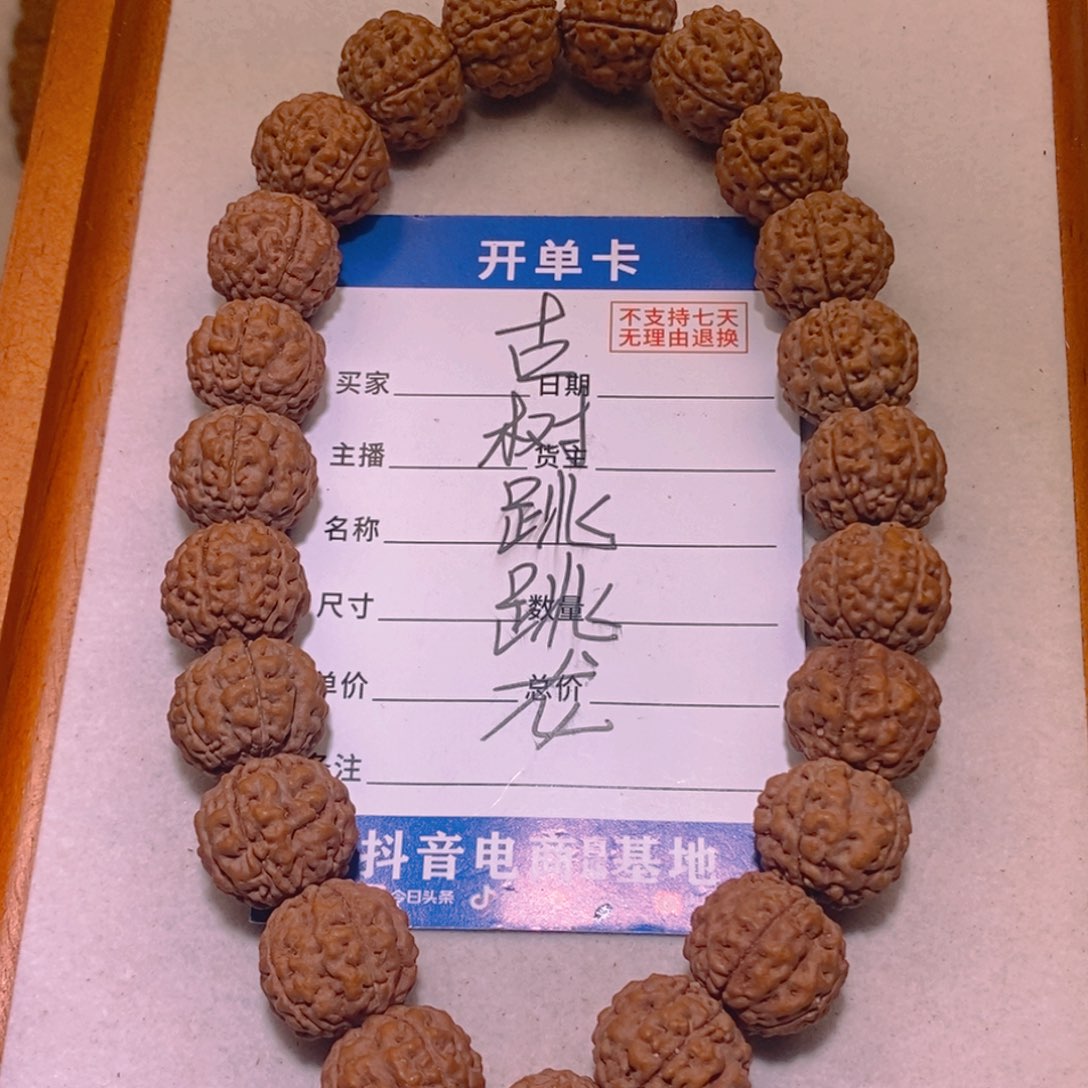 开单卡
不支持七天
无理由退换
古树跳跳龙
买家 日期
主播 货主
名称
尺寸 数量
单价 总价
备注
抖音电商 基地
今日头条